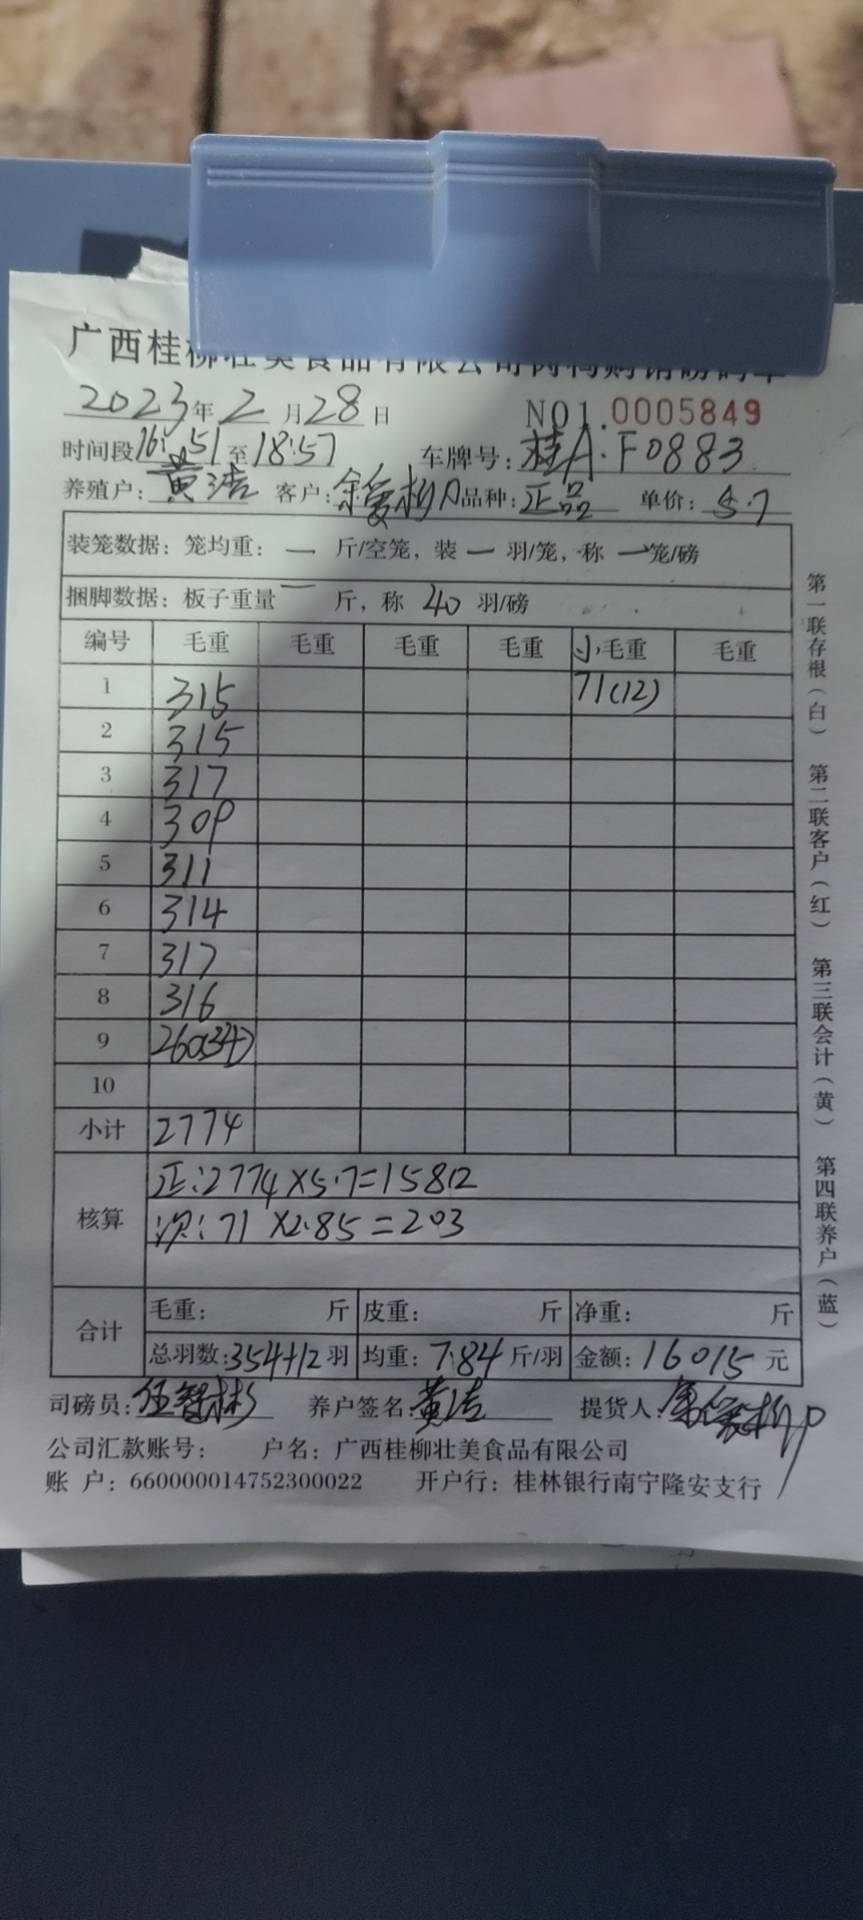 广西桂柳壮美食品有限公司肉鸭购销磅码单
2023年2月28日 NO1.0005849
时间段16:51至18:57 车牌号:桂A·F0883
养殖户:黄洁 客户: 品种:正品 单价:5.7
装笼数据:笼均重:一斤/空笼,装一羽/笼,称一笼/磅
捆脚数据:板子重量一斤,称40羽/磅
编号 毛重 毛重 毛重 毛重 小毛重 毛重
1 315 71(12)
2 315
3 317
4 309
5 311
6 314
7 317
8 316
9 260(34)
10
小计 2774
核算 正:2774×5.7=15812
次:71×2.85=203
合计 毛重: 斤 皮重: 斤 净重: 斤
总羽数:354+12羽 均重:7.84斤/羽 金额:16015元
司磅员:伍智彬 养户签名:黄洁 提货人:
公司汇款账号: 户名:广西桂柳壮美食品有限公司
账户:660000014752300022 开户行:桂林银行南宁隆安支行
第一联存根(白) 第二联客户(红) 第三联会计(黄) 第四联养户(蓝)